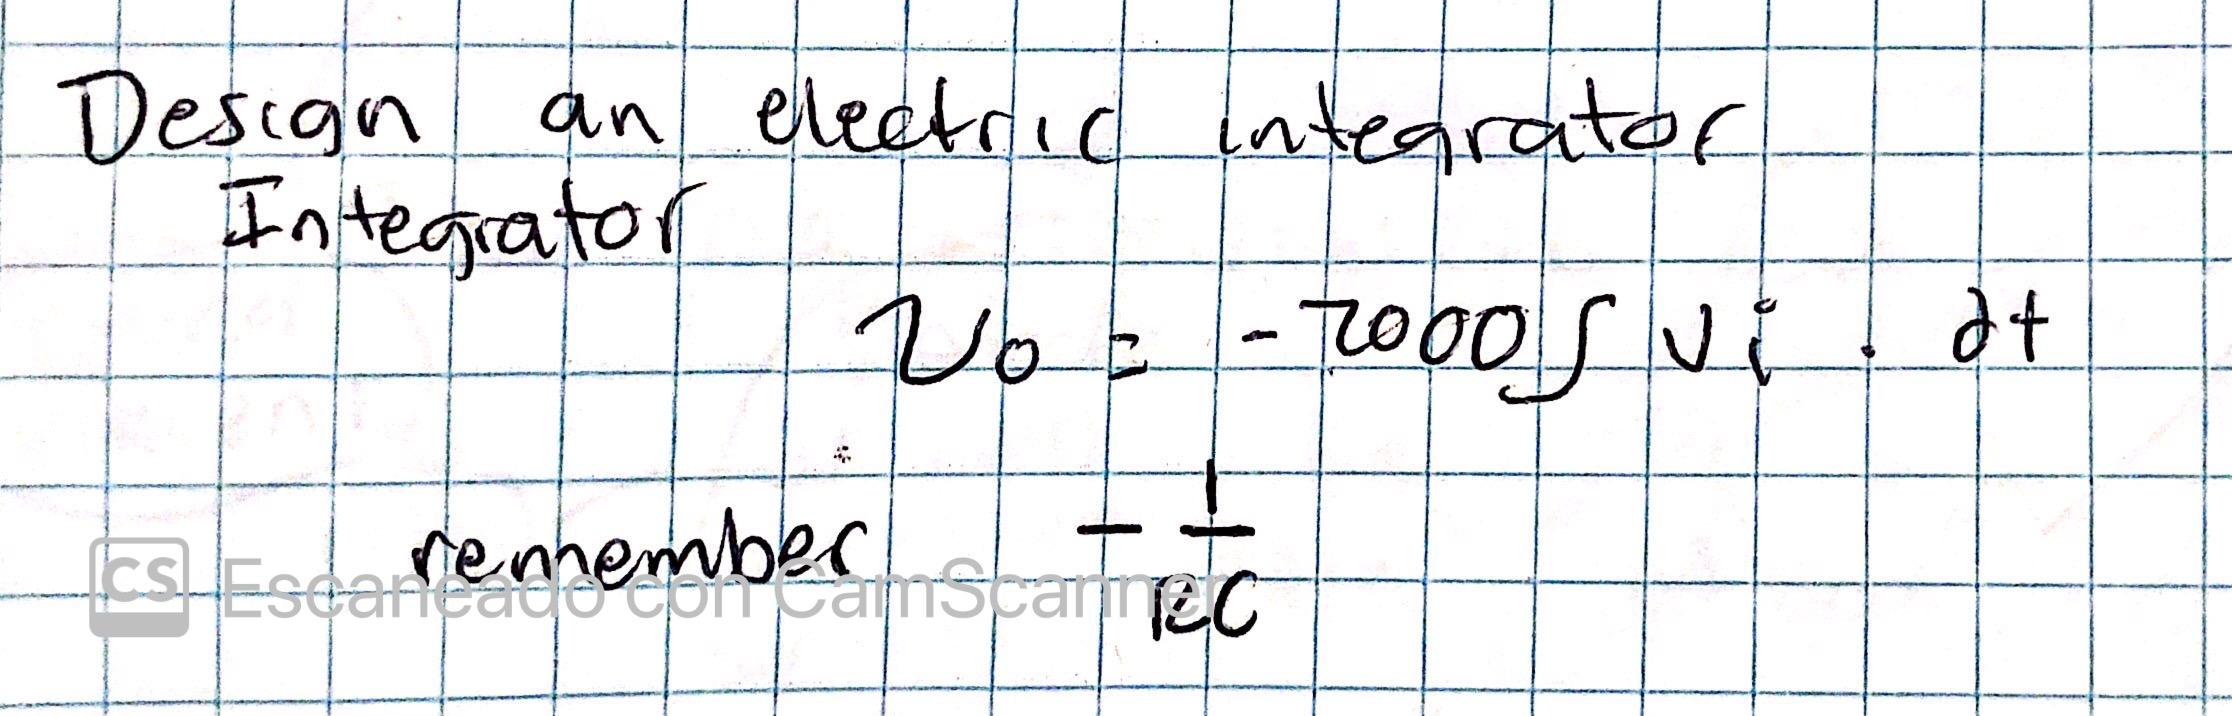 Design an electric integrator
Integrator
Vo = -2000 ∫ Vi . dt
remember - 1/RC
CS Escaneado con CamScanner